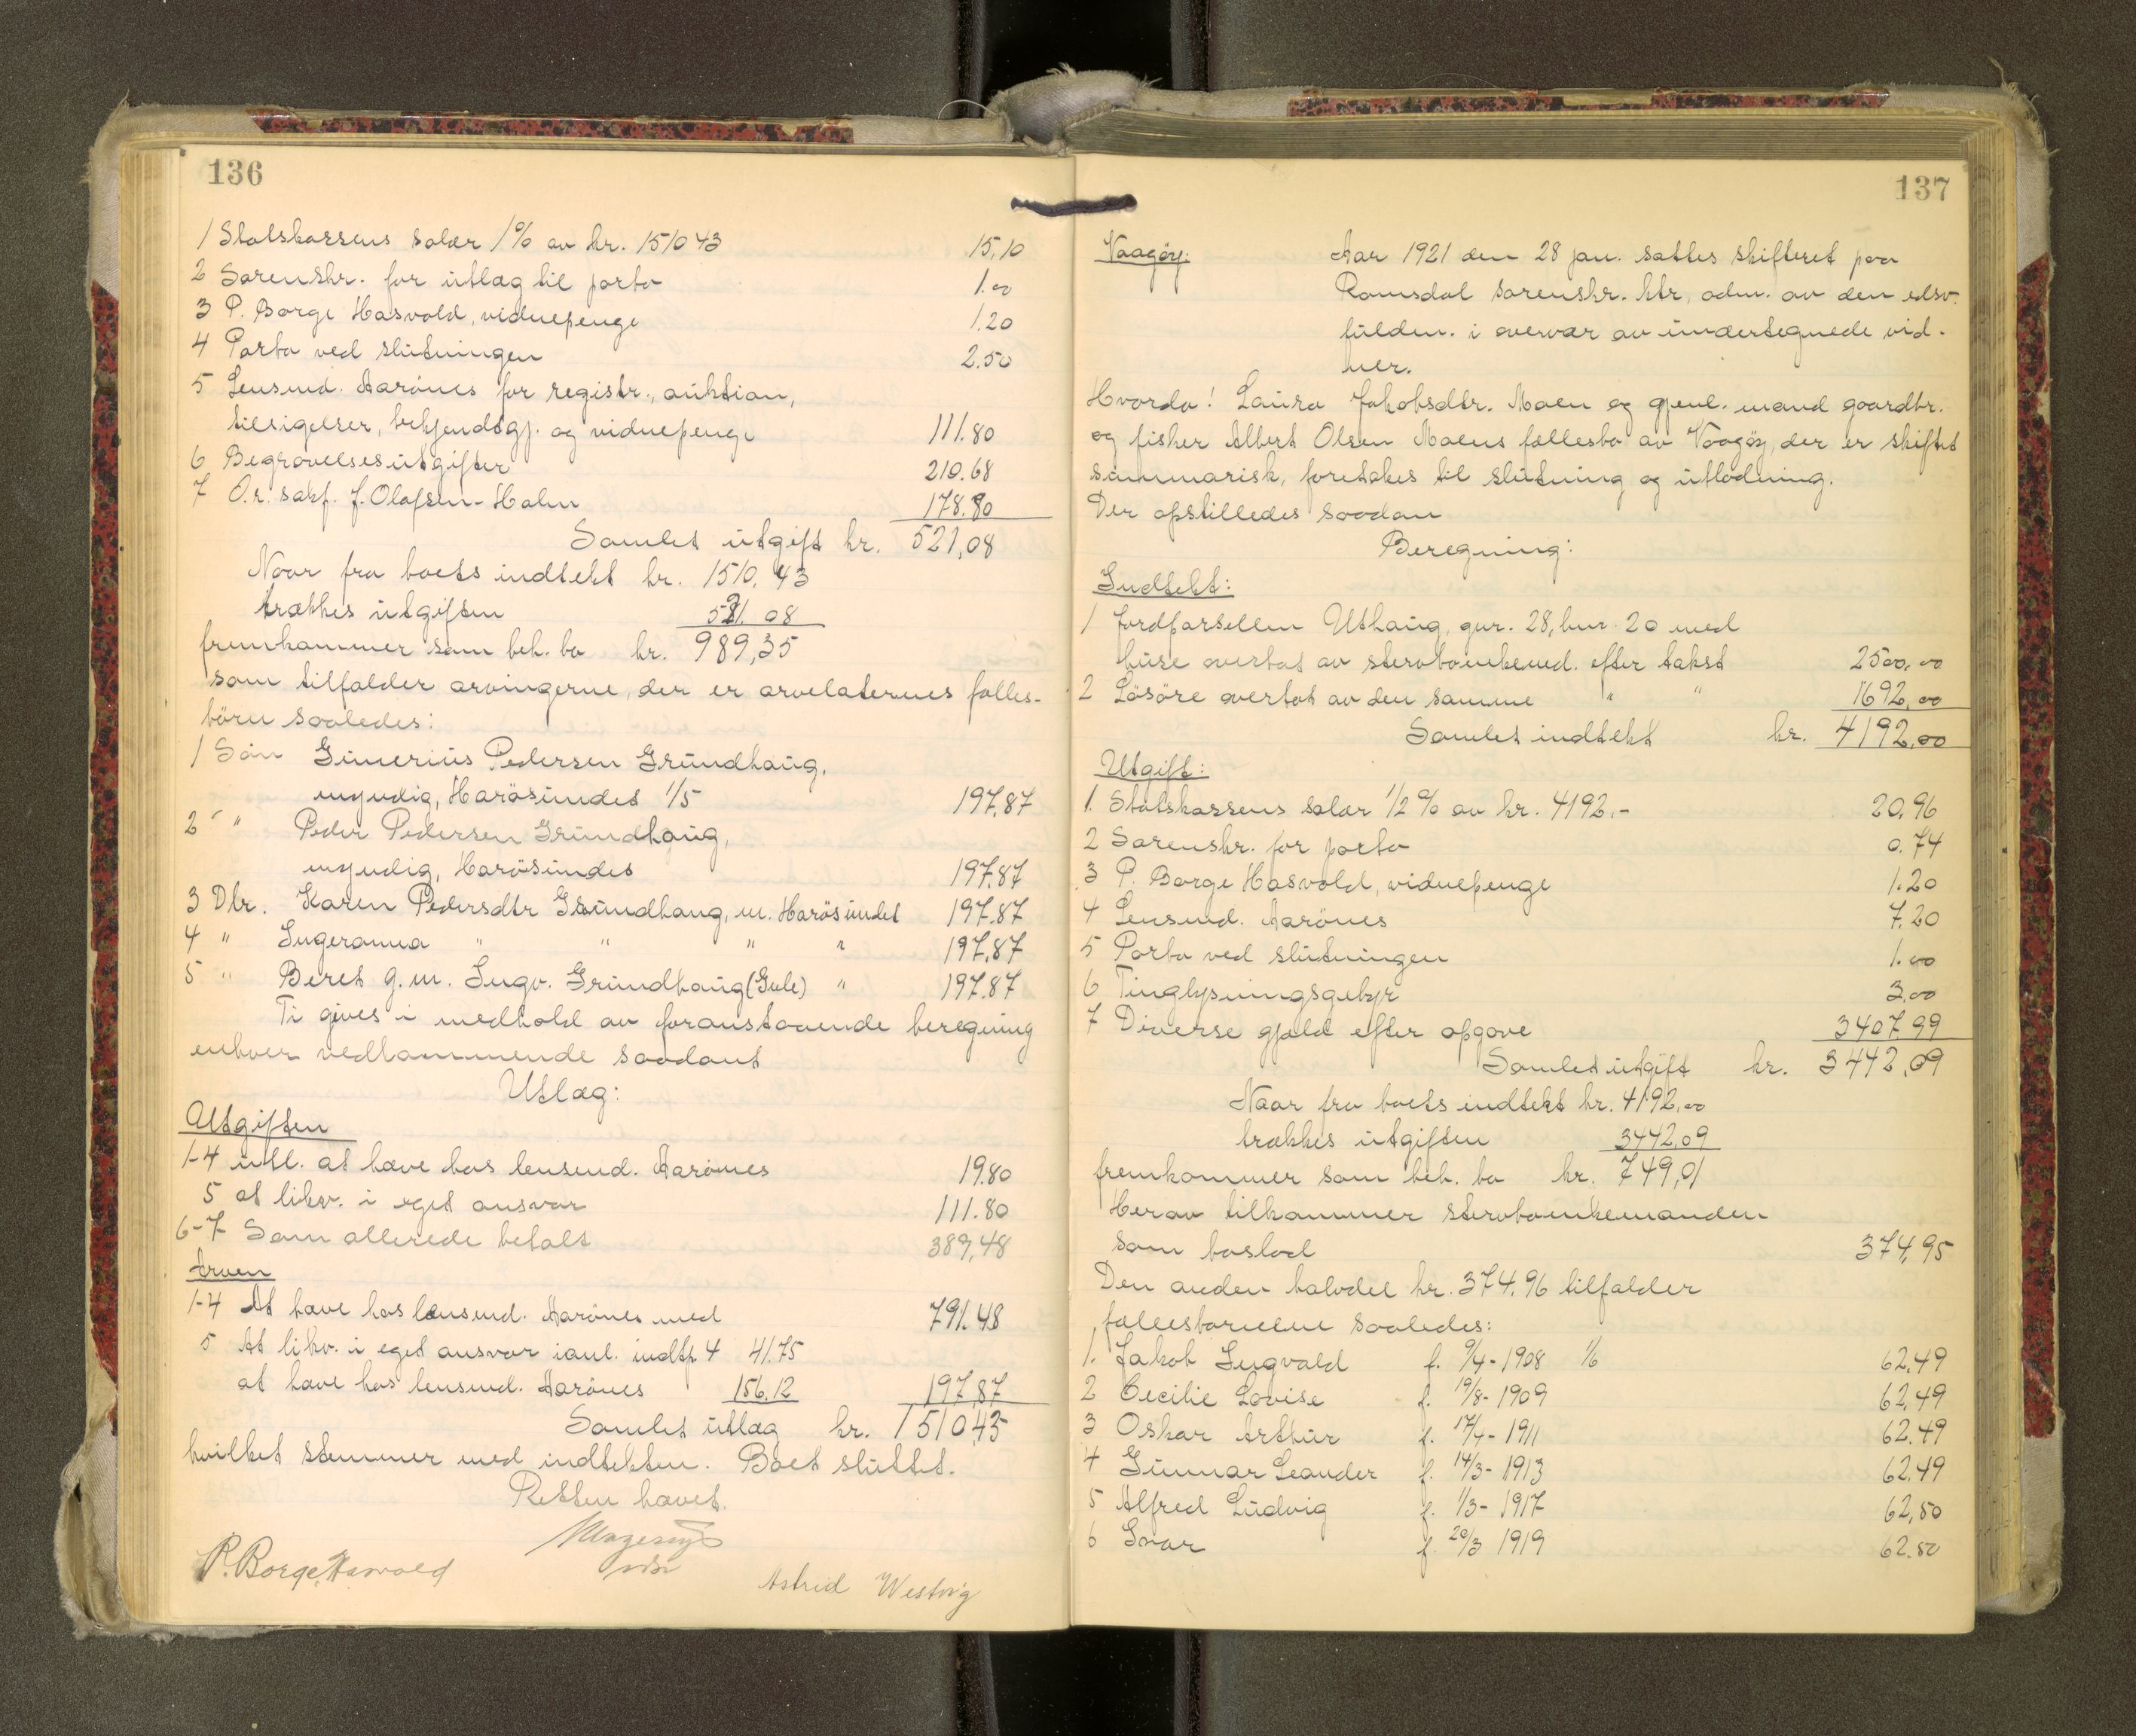 136
1 Statskassens salær 1% av kr. 1510 43 15,10
2 Sorenskr. for utlæg til porto 1.00
3 P. Borge Hasvold, vidnepenge 1.20
4 Porto ved slutningen 2.50
5 Lensmd. Aarönes for registr., auktion,
tilsigelser, bekjendtgj. og vidnepenge 111.80
6 Begravelsesutgifter 210.68
7 O.r. sakf. J. Olafsen-Holm 178.80
Samlet utgift kr. 521,08
Naar fra boets indtekt kr. 1510,43
trækkes utgiften 521.08
fremkommer som beh. bo kr. 989,35
som tilfalder arvingerne, der er arvelaternes fælles-
börn saaledes:
1 Sön Gunerius Pedersen Grundhaug,
myndig, Harösundet 1/5 197,87
2 " Peder Pedersen Grundhaug,
myndig, Harösundet 197.87
3 Dtr. Karen Pedersdtr Grundhaug, m. Harösundet 197.87
4 " Ingeranna " " " " 197,87
5 " Beret g.m. Ingv. Grundhaug (Gule) " 197.87
Ti gives i medhold av foranstaaende beregning
enhver vedkommende saadant
Utlæg:
Utgiften
1-4 utl. at hæve hos lensmd. Aarönes 19.80
5 at likv. i eget ansvar 111.80
6-7 Som allerede betalt 389,48
Arven
1-4 At hæve hos lensmd. Aarönes med 791.48
5 At likv. i eget ansvar ianl. indtp. 4 41.75
at hæve hos lensmd. Aarönes 156.12 197,87
Samlet utlæg kr. 1510,43
hvilket stemmer med indtekten. Boet sluttet.
Retten hævet.
P. Borge Hasvold
Astrid Westvig
137
Vaagöy:
Aar 1921 den 28 jan. sattes skifteret paa
Romsdal sorenskr. ktr, adm. av den edsv.
fuldm. i overvær av undertegnede vid-
ner.
Hvorda! Laura Jakobsdtr. Moen og gjenl. mand gaardbr.
og fisker Albert Olsen Moens fællesbo av Vaagöy, der er skiftet
summarisk, foretokes til slutning og utlodning.
Der opstilledes saadan
Beregning:
Indtekt:
1 Jordparsellen Uthaug, gnr. 28, bnr 20 med
huse overtat av stervboenkemd. efter takst 2500,00
2 Lösöre overtat av den samme " " 1692,00
Samlet indtekt kr. 4192,00
Utgift:
1. Statskassens salær 1/2 % av kr. 4192.- 20,96
2 Sorenskr. for porto 0.74
3 P. Borge Hasvold, vidnepenge 1.20
4 Lensmd. Aarönes 7.20
5 Porto ved slutningen 1.00
6 Tinglysningsgebyr 3,00
7 Diverse gjæld efter opgave 3407.99
Samlet utgift kr. 3442,09
Naar fra boets indtekt kr. 4192,00
trækkes utgiften 3442,09
fremkommer som beh. bo kr. 749,91
Herav tilkommer stervboenkemanden
som boslod 374,95
Den anden halvdel kr. 374.96 tilfalder
fællesbarnene saaledes:
1. Jakob Ingvald f. 9/4-1908 1/6 62.49
2 Cecilie Lovise f. 19/8-1909 62,49
3 Oskar Arthur f. 17/4-1911 62.49
4 Gunnar Leander f. 14/3-1913 62.49
5 Alfred Ludvig f. 1/3-1917 62,50
6 Ivar f. 20/3 1919 62.50